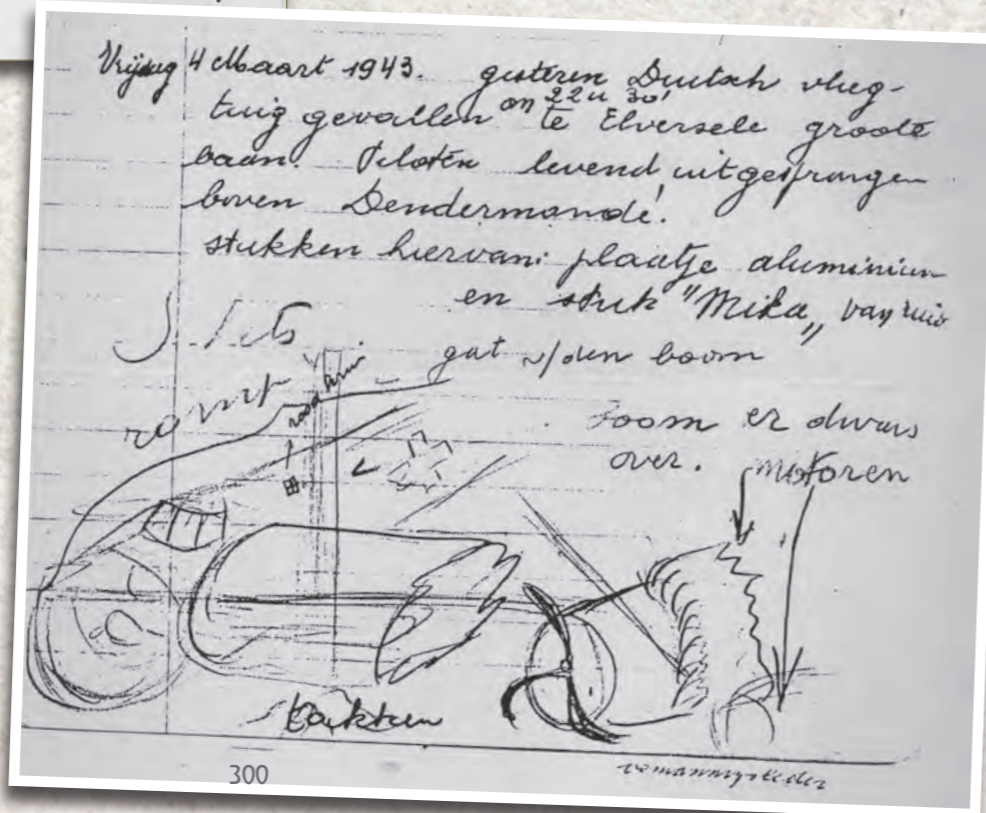 Vrijdag 4 Maart 1943. gisteren Duitsch vlieg-
tuig gevallen om 22u 30' te Elversele groote
baan. Piloten levend uitgesprongen
boven Dendermonde!
stukken hiervan: plaatje aluminium
en stuk "Mika„ van
gat v/den boom
romp
boom er dwars
over. motoren
300